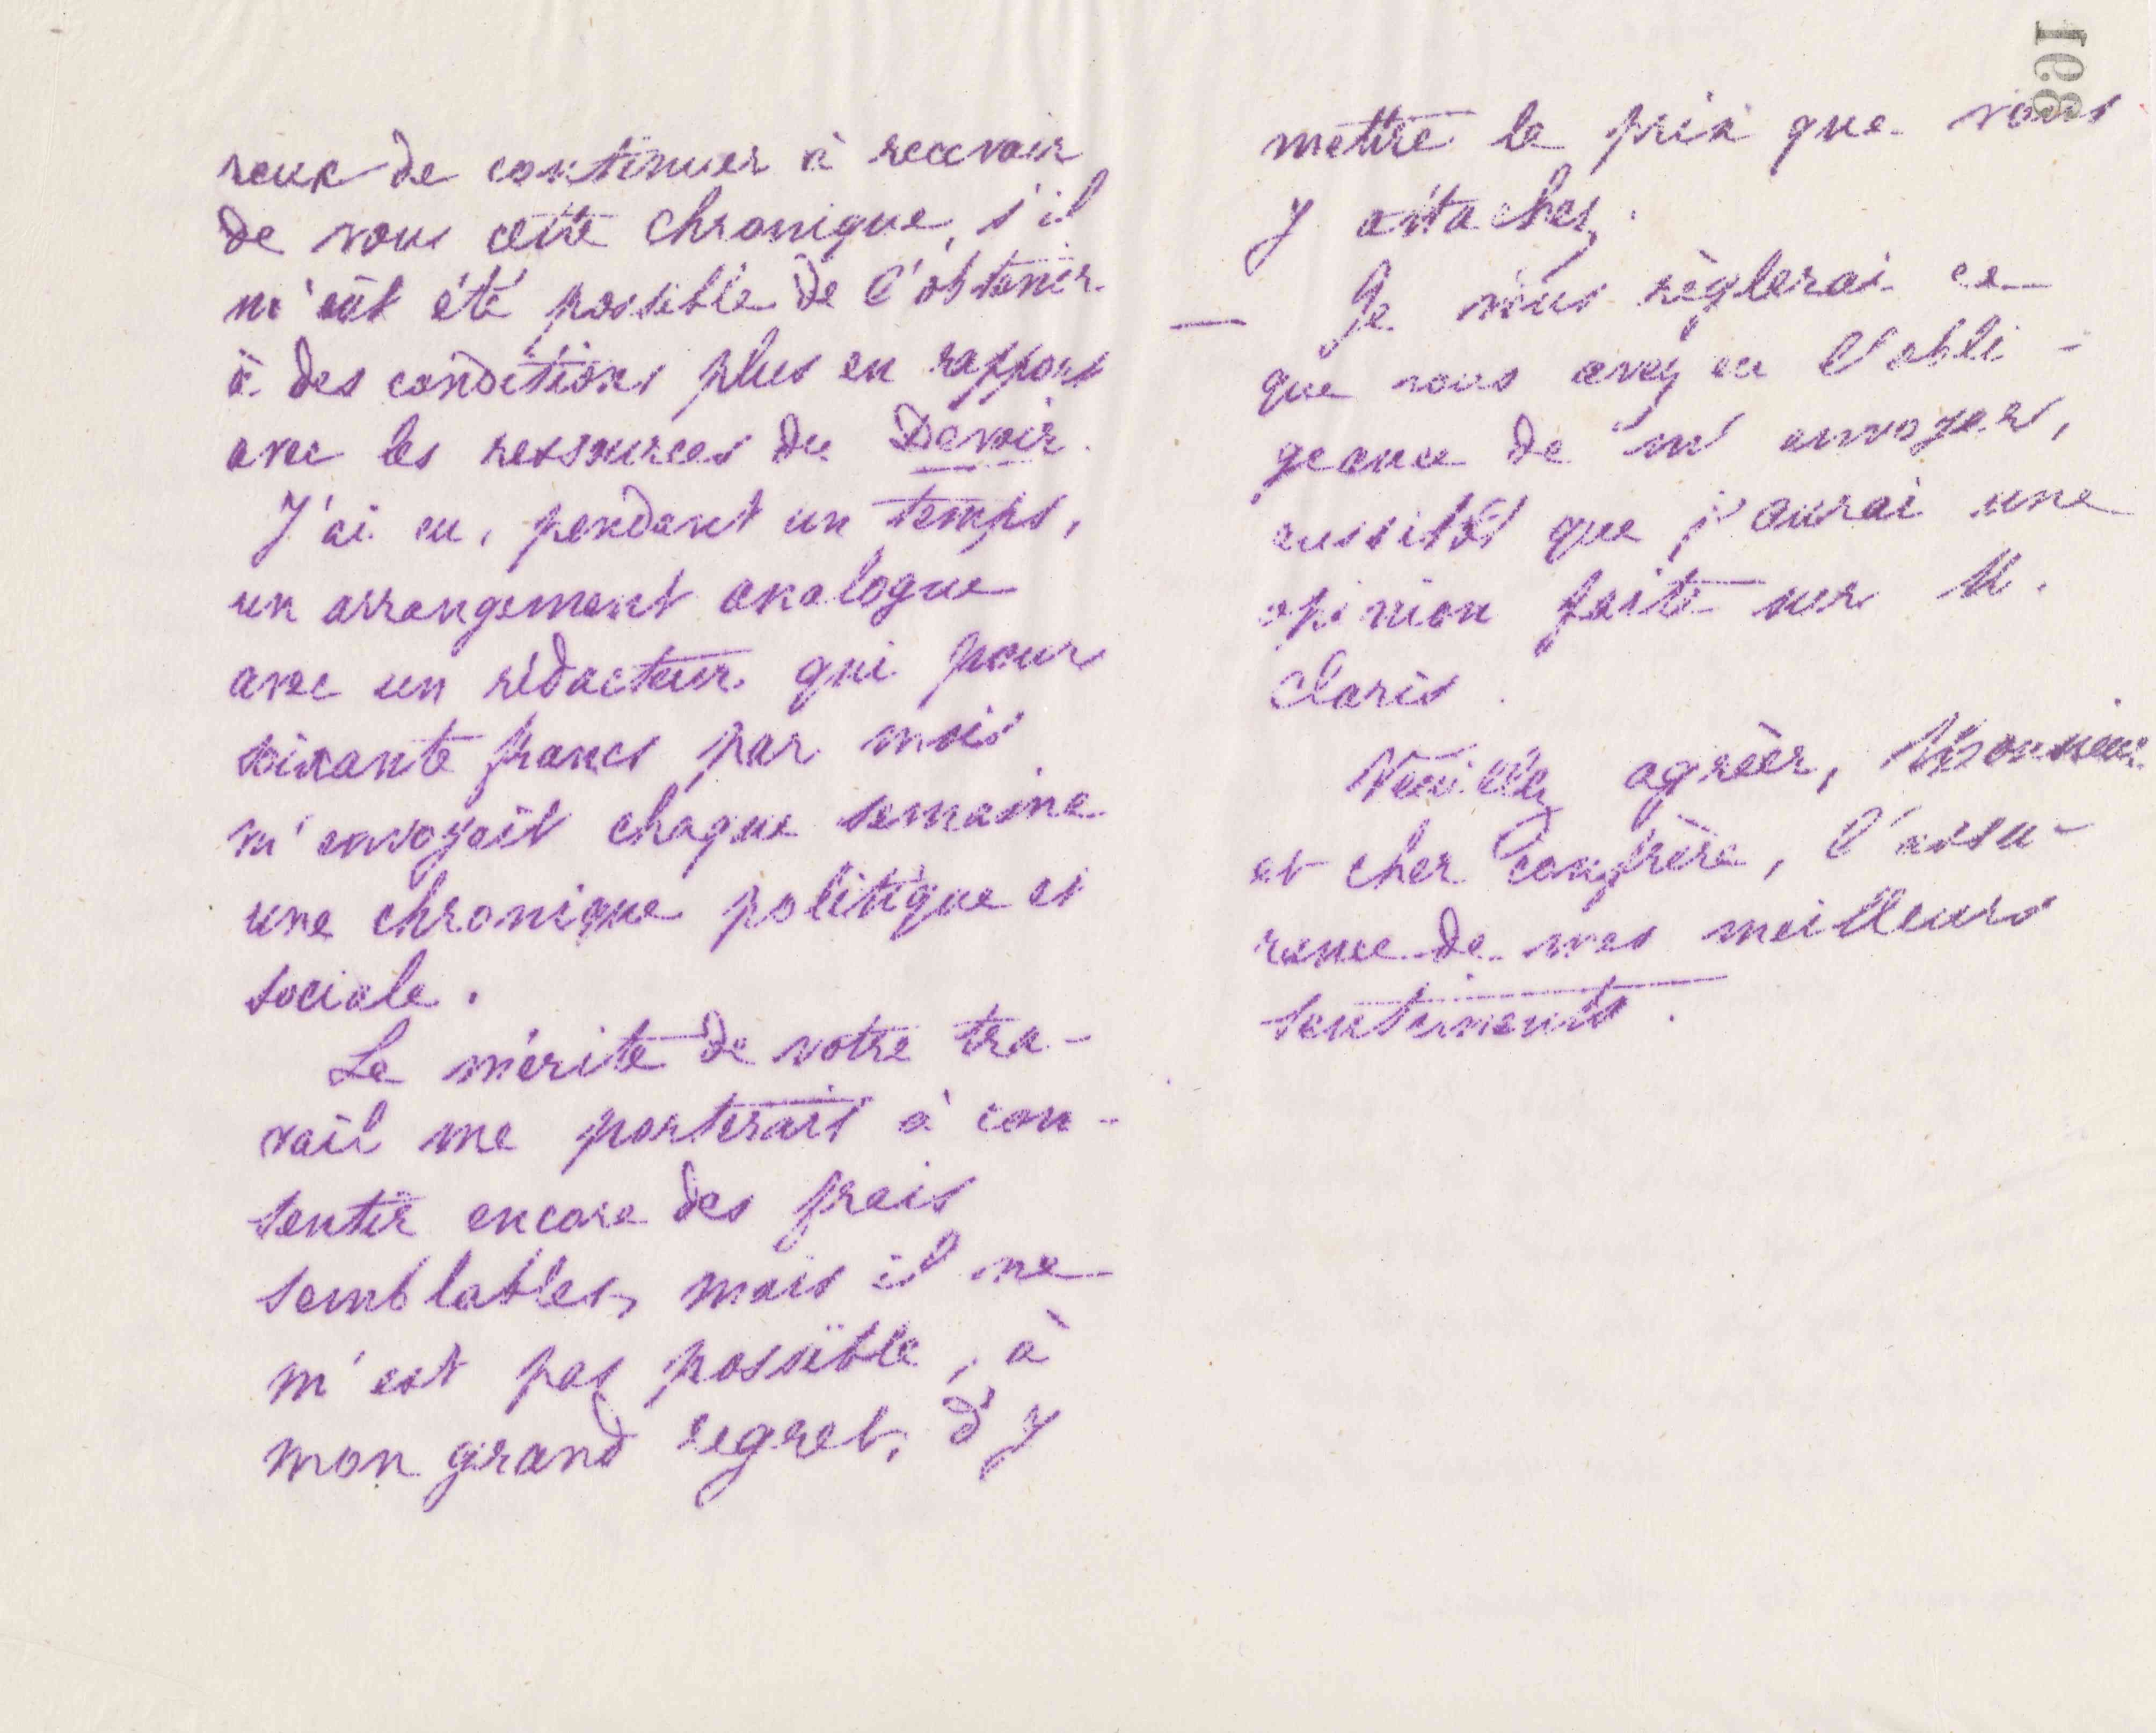 reux de continuer à recevoir
de vous cette chronique, s'il
m'eût été possible de l'obtenir
à des conditions plus en rapport
avec les ressources du Devoir.
J'ai eu, pendant un temps,
un arrangement analogue
avec un rédacteur qui pour
soixante francs par mois
m'envoyait chaque semaine
une chronique politique et
sociale.
Le mérite de votre tra-
vail me porterait à con-
sentir encore des frais
semblables, mais il ne
m'est pas possible, à
mon grand regret, d'y
mettre le prix que vous
y attachez.
— Je vous règlerai ce
que vous avez eu l'obli-
geance de m'envoyer,
aussitôt que j'aurai une
opinion faite sur M.
Claris.
Veuillez agréer, Monsieur
et cher confrère, l'assu-
rance de mes meilleurs
sentiments.